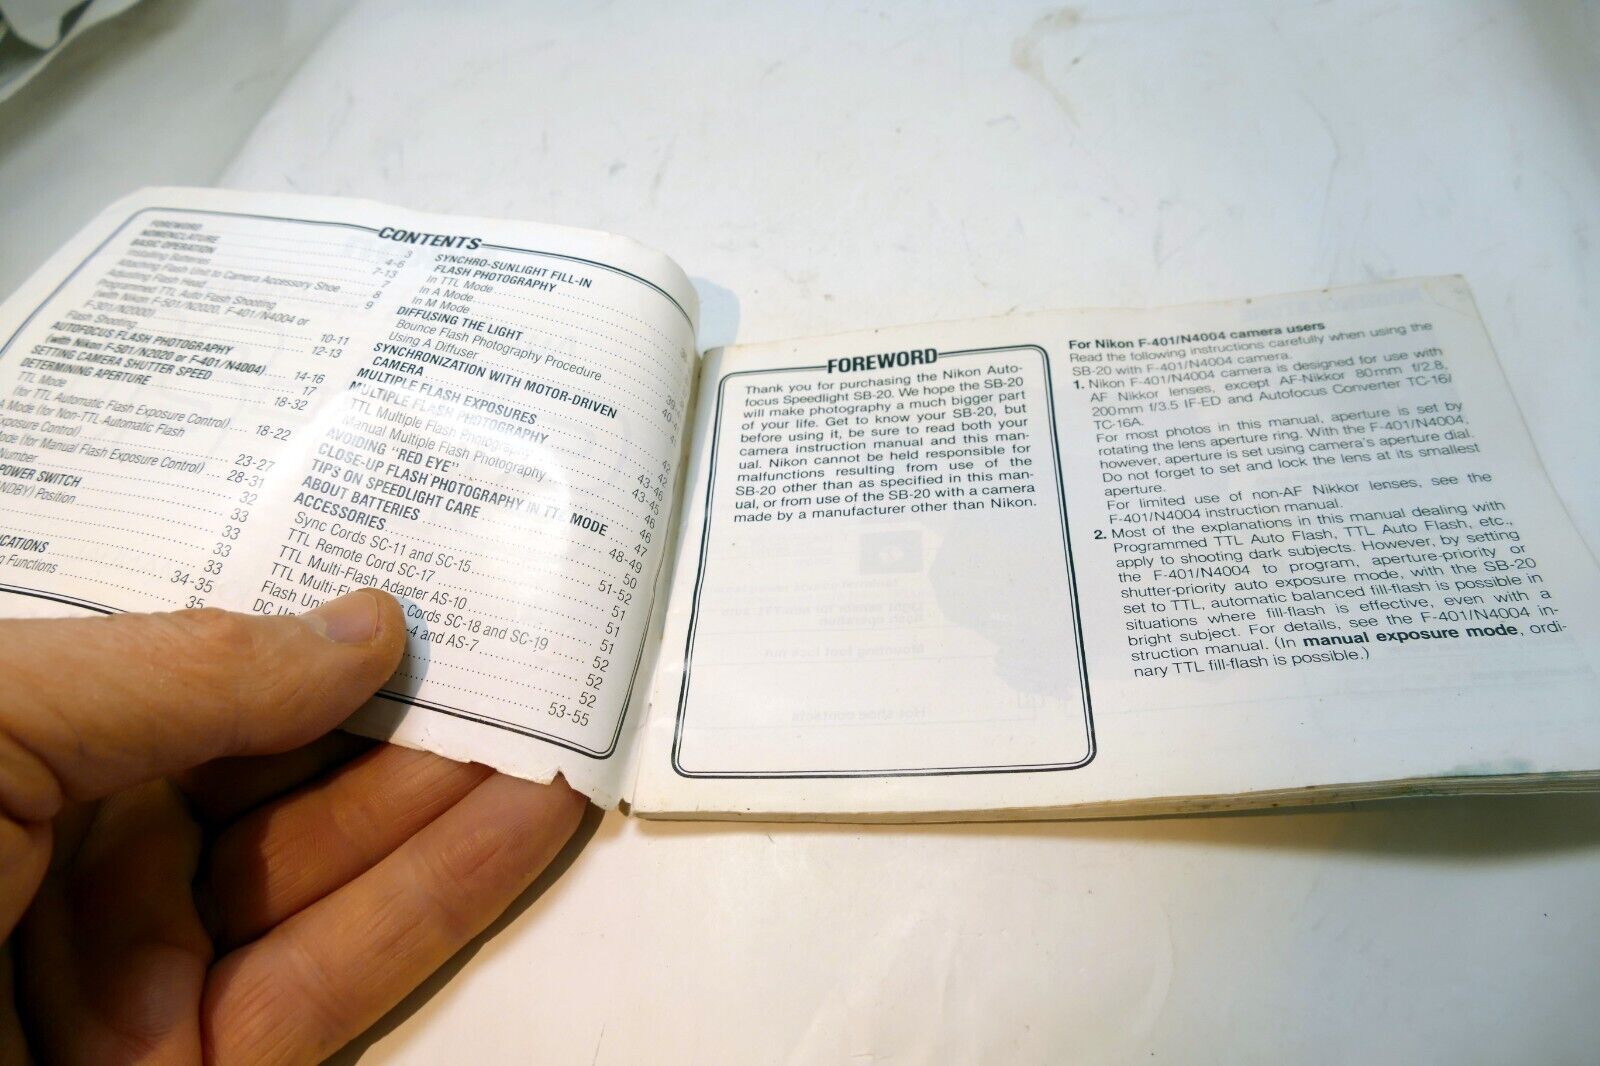 CONTENTS
FOREWORD 3
NOMENCLATURE 4-6
BASIC OPERATION 7-13
Installing Batteries 7
Attaching Flash Unit to Camera Accessory Shoe 8
Adjusting Flash Head 9
Programmed TTL Auto Flash Shooting
(with Nikon F-501/N2020, F-401/N4004 or
F-301/N2000) 10-11
Flash Shooting 12-13
AUTOFOCUS FLASH PHOTOGRAPHY
(with Nikon F-501/N2020 or F-401/N4004) 14-16
SETTING CAMERA SHUTTER SPEED 17
DETERMINING APERTURE 18-32
TTL Mode
(for TTL Automatic Flash Exposure Control) 18-22
A Mode (for Non-TTL Automatic Flash
Exposure Control) 23-27
Mode (for Manual Flash Exposure Control) 28-31
Number 32
POWER SWITCH 33
Position 33
33
33
34-35
Functions 35
SYNCHRO-SUNLIGHT FILL-IN
FLASH PHOTOGRAPHY
In TTL Mode
In A Mode
In M Mode
DIFFUSING THE LIGHT
Bounce Flash Photography Procedure
Using A Diffuser
SYNCHRONIZATION WITH MOTOR-DRIVEN
CAMERA
MULTIPLE FLASH EXPOSURES 42
MULTIPLE FLASH PHOTOGRAPHY 43-46
TTL Multiple Flash Photography
Manual Multiple Flash Photography
AVOIDING "RED EYE" 46
CLOSE-UP FLASH PHOTOGRAPHY IN TTL MODE
TIPS ON SPEEDLIGHT CARE
ABOUT BATTERIES 48-49
ACCESSORIES
Sync Cords SC-11 and SC-15
TTL Remote Cord SC-17
TTL Multi-Flash Adapter AS-10
TTL Multi-Fl Cords SC-18 and SC-19
Flash Uni -4 and AS-7
DC Uni
53-55
FOREWORD
Thank you for purchasing the Nikon Auto-
focus Speedlight SB-20. We hope the SB-20
will make photography a much bigger part
of your life. Get to know your SB-20, but
before using it, be sure to read both your
camera instruction manual and this man-
ual. Nikon cannot be held responsible for
malfunctions resulting from use of the
SB-20 other than as specified in this man-
ual, or from use of the SB-20 with a camera
made by a manufacturer other than Nikon.
For Nikon F-401/N4004 camera users
Read the following instructions carefully when using the
SB-20 with F-401/N4004 camera.
1. Nikon F-401/N4004 camera is designed for use with
AF Nikkor lenses, except AF-Nikkor 80mm f/2.8,
200mm f/3.5 IF-ED and Autofocus Converter TC-16/
TC-16A.
For most photos in this manual, aperture is set by
rotating the lens aperture ring. With the F-401/N4004,
however, aperture is set using camera's aperture dial.
Do not forget to set and lock the lens at its smallest
aperture.
For limited use of non-AF Nikkor lenses, see the
F-401/N4004 instruction manual.
2. Most of the explanations in this manual dealing with
Programmed TTL Auto Flash, TTL Auto Flash, etc.,
apply to shooting dark subjects. However, by setting
the F-401/N4004 to program, aperture-priority or
shutter-priority auto exposure mode, with the SB-20
set to TTL, automatic balanced fill-flash is possible in
situations where fill-flash is effective, even with a
bright subject. For details, see the F-401/N4004 in-
struction manual. (In manual exposure mode, ordi-
nary TTL fill-flash is possible.)